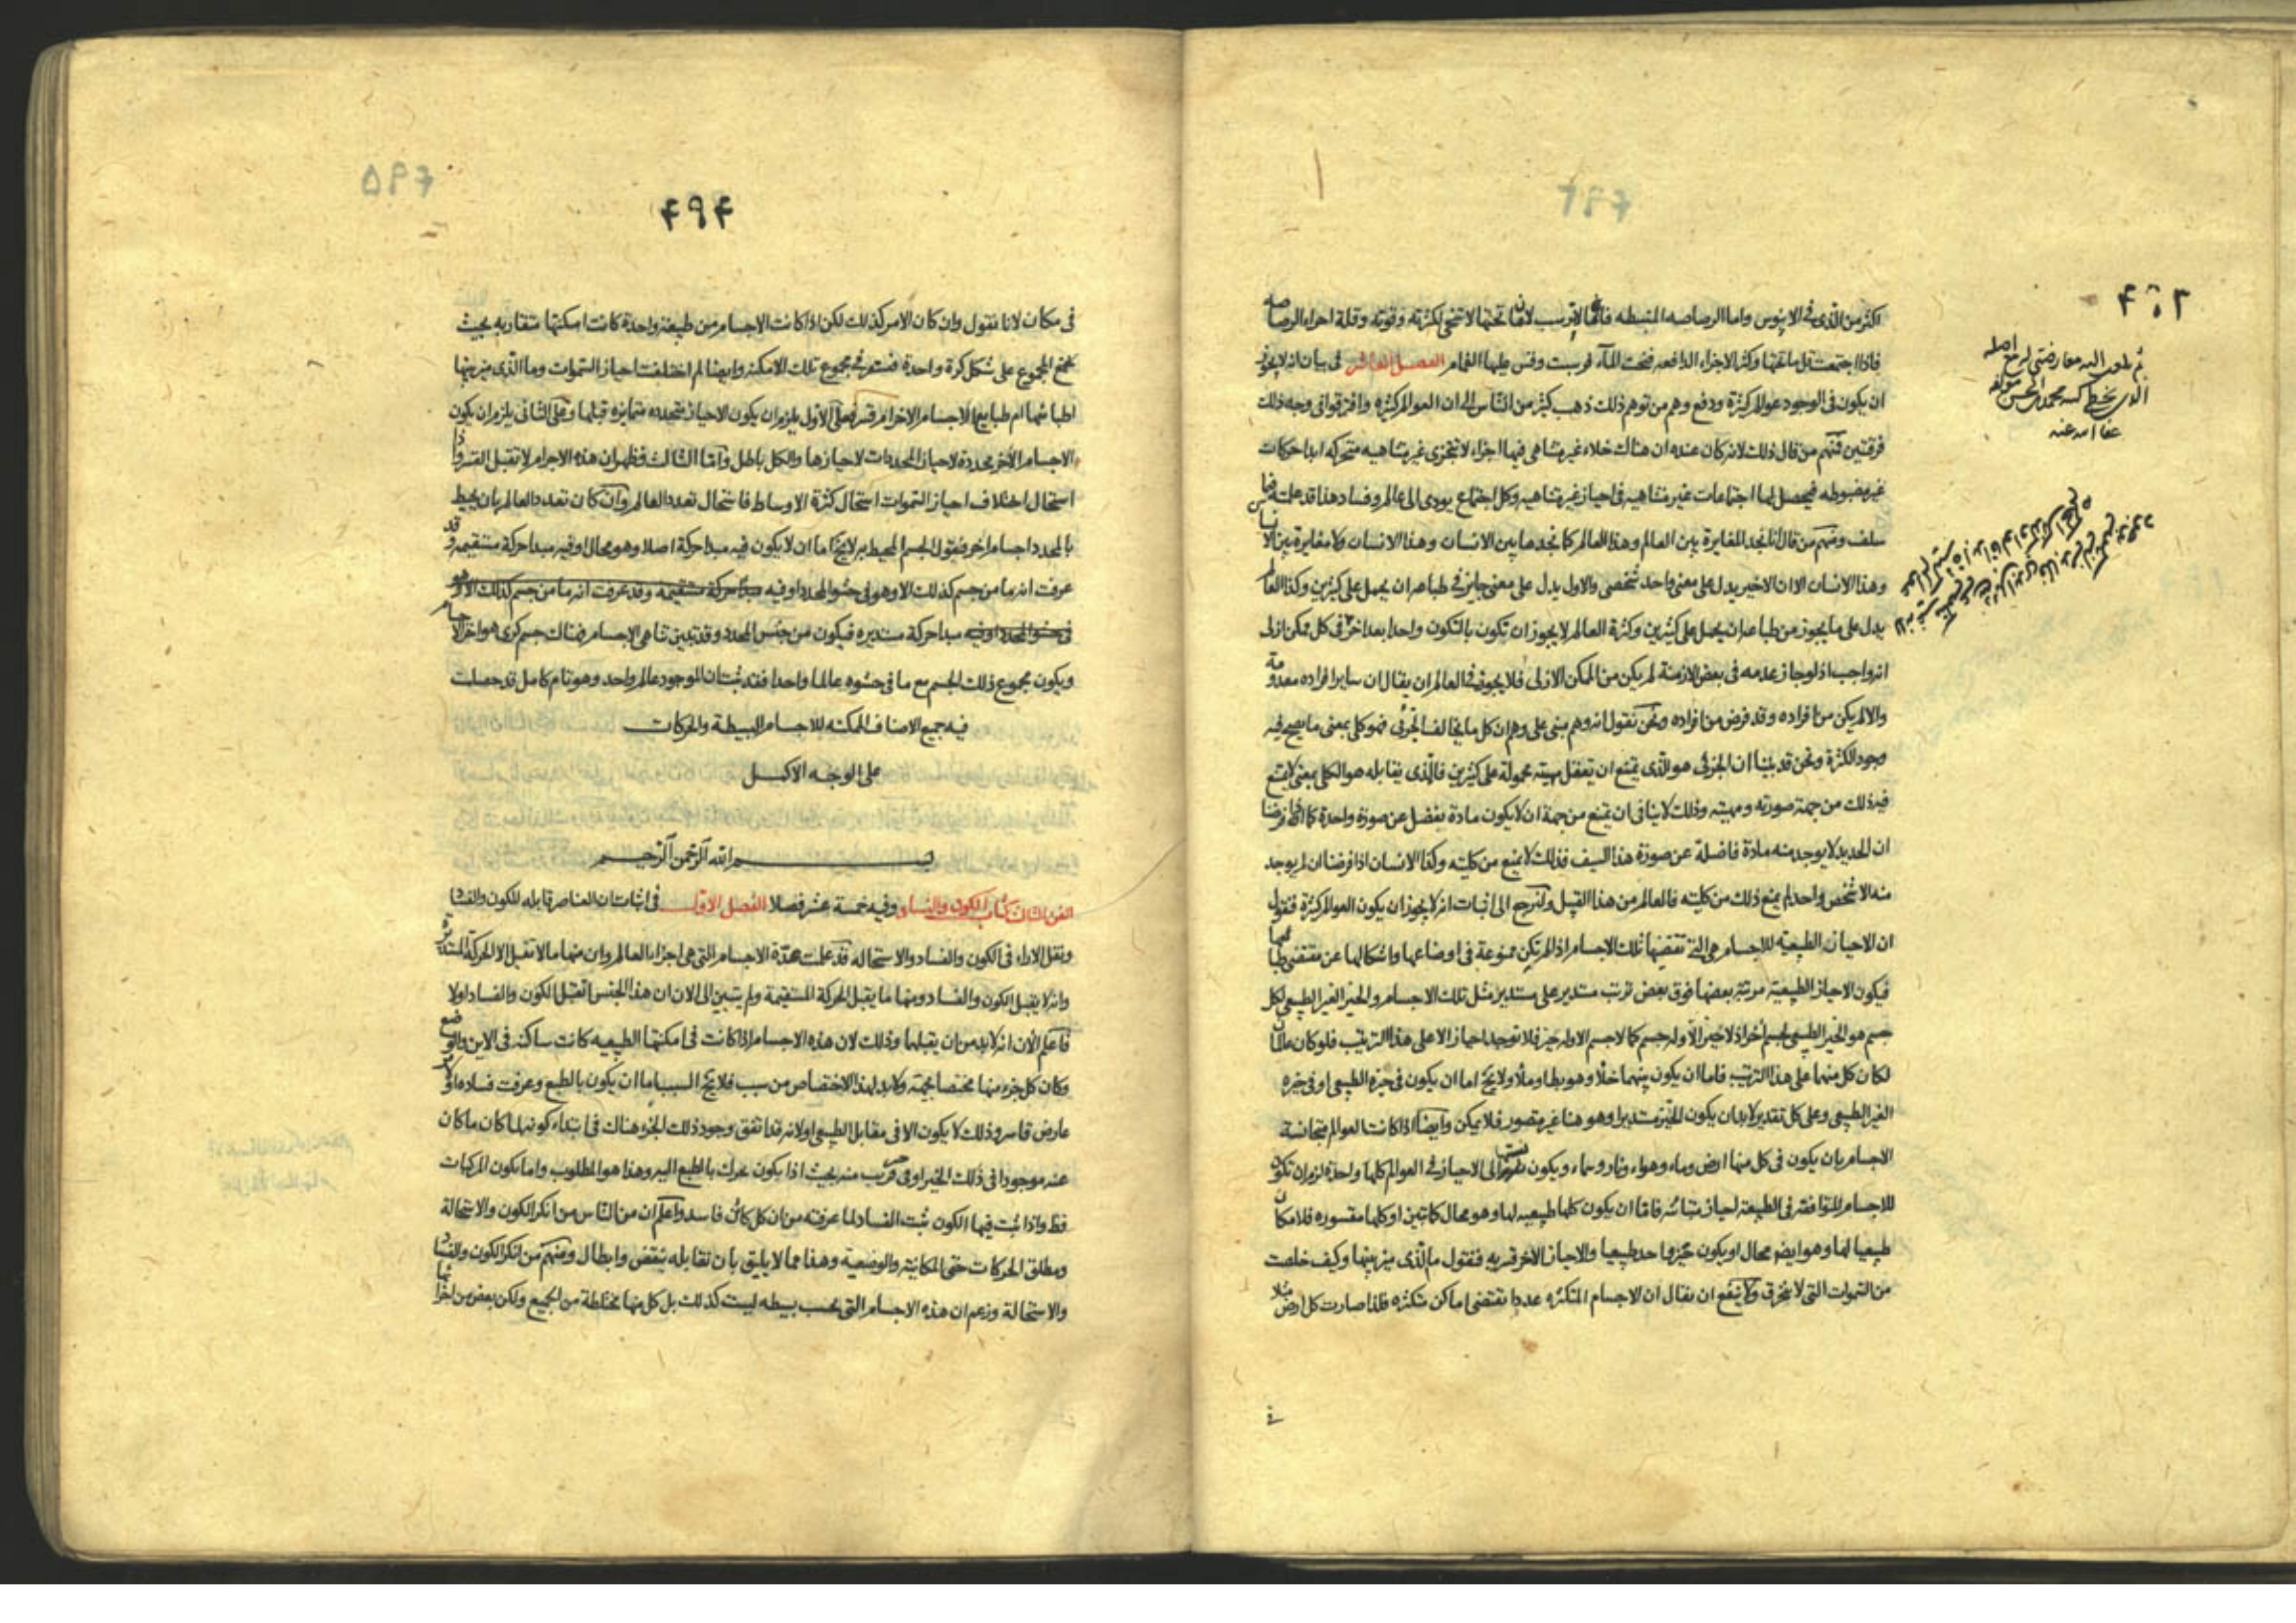 اكثر من الذى فى الابنوس واما الرصاصه المنبسطه فانها لا ترسب لان ما تحتها لا تتنحى لكثرته وقوته وقلة اجزاء الرصاصه
فاذا اجتمعت قل ما تحتها وكثر الاجزاء الدافعه فنحت المآء فرسبت وقس عليها الغمام الفصل العاشر فى بيان انه لا يجوز
ان يكون فى الوجود عوالم كثيرة ودفع وهم من توهم ذلك ذهب كثير من الناس الى ان العوالم كثيرة وافترقوا فى وجه ذلك
فرقتين فمنهم من قال ذلك لانه كان عنده ان هناك خلاء غير متناهى فيها اجزاء لا تتجزى غير متناهيه متحركه ابدا حركات
غير مضبوطه فيحصل لها اجتماعات غير متناهيه فى احياز غير متناهيه وكل اجتماع يودى الى عالم وفساد هذا قد علمته فيما
سلف ومنهم من قال انا نجد المغايرة بين العالم وهذا العالم كما نجدها بين الانسان وهذا الانسان ولا مغايرة بين الانسان
وهذا الانسان الا ان الاخير يدل على معنى واحد شخصى والاول يدل على معنى جايز فى طباعه ان يحمل على كثيرين وكذا العالم
يدل على ما يجوز من طباعه ان يحمل على كثيرين وكثرة العالم لا يجوز ان تكون بالتكون واحدا بعد اخر فى كل ممكن ازلى
انه واجب اذ لو جاز عدمه فى بعض الازمنة لم يكن من الممكن الازلى فلا يجوز فى العالم ان يقال ان ساير افراده معدومة
والا لم يكن من افراده وقد فرض من افراده ونحن نقول انه وهم مبنى على وهم ان كل ما يخالف الجزئى فهو كلى بمعنى ما يصح فيه
وجود الكثرة ونحن قد بينا ان الجزئى هو الذى يمتنع ان يتعقل مهيته محمولة على كثيرين فالذى يقابله هو الكلى بمعنى لا يمتنع
فيه ذلك من جهة صورته ومهيته وذلك لا ينافى ان يمتنع من جهة ان لا يكون مادة يفضل عن صورة واحدة كما اذا فرضنا
ان الحديد لا يوجد منه مادة فاضلة عن صورة هذا السيف فذلك لا يمنع من كليته وكذا الانسان اذا فرضنا ان لم يوجد
منه الا شخص واحد لم يمنع ذلك من كليته فالعالم من هذا القبيل ولنرجع الى اثبات انه لا يجوز ان يكون العوالم كثيرة فنقول
ان الاحياز الطبيعيه للاجسام هى التى تقتضيها تلك الاجسام اذا لم تكن ممنوعة فى اوضاعها واشكالها عن مقتضى طباعها
فيكون الاحياز الطبيعية مرتبة بعضها فوق بعض ترتب مستدير على مستدير مثل تلك الاجسام والحيز الغير الطبيعى لكل
جسم هو الحيز الطبيعى لجسم اخر اذ لا حيز الا وله جسم كما لا جسم الا وله حيز فلا توجد احياز الا على هذا الترتيب فلو كان عالمان
لكان كل منهما على هذا الترتيب فاما ان يكون بينهما خلأ وهو بط او ملأ ولا يخ اما ان يكون فى حيزه الطبيعى او فى حيزه
الغير الطبيعى وعلى كل تقدير لا بد ان يكون الحيز مستديرا وهو هنا غير متصور فلا يمكن وايضا اذا كانت العوالم متجانسة
الاجسام بان يكون فى كل منها ارض وماء وهواء ونار وسماء ويكون نسبتها الى الاحياز فى العوالم كلها واحدة لزم ان تكون
للاجسام المتوافقة فى الطبيعة احياز متباينه فاما ان يكون كلها طبيعيه لها وهو محال كما تبين او كلها مقسوره فلا مكان
طبيعيا لها وهو ايضا محال او يكون حيز واحد طبيعيا والاحياز الاخر قسريه فنقول ما الذى ميز بينها وكيف خلصت
من السموات التى لا ينخرق ولا ينفع ان يقال ان الاجسام المتكثره عددا تقتضى اماكن متكثره فلذا صارت كل ارض مثلا
فى
عفا الله عنه
۴۹۴
فى مكان لانا نقول وان كان الامر كذلك لكن اذا كانت الاجسام من طبيعة واحدة كانت امكنتها متقاربه بحيث
يجتمع المجموع على شكل كرة واحدة فتستقر فى مجموع تلك الامكنه وايضا لم اختلفت احياز السموات وما الذى ميز بينها
اطباعها ام طبايع الاجسام الاخر ام قسر فعلى الاول يلزم ان يكون الاحياز متحدده متمايزه قبلها وعلى الثانى يلزم ان يكون
الاجسام الاخر محددة لاحياز المحددات لاحيازها والكل باطل واما الثالث فظهر ان هذه الاجرام لا تقبل القسر واذا
استحال اختلاف احياز السموات استحال كثرة الاوساط فاستحال تعدد العالم وان كان تعدد العالم بان يحيط
بالمحدد اجسام اخر فنقول الجسم المحيط به لا يخ اما ان لا يكون فيه مبدأ حركة اصلا وهو محال او فيه مبدا حركة مستقيمه وقد
عرفت انه ما من جسم كذلك الا وهو فى حشو المحدد او فيه مبدأ حركة مستقيمه وقد عرفت انه ما من جسم كذلك الا وهو
فى حشو المحدد او فيه مبدا حركة مستديره فيكون من جنس المحدد وقد تبين تناهى الاجسام فهناك جسم كرى هو اخر الاجسام
ويكون مجموع ذلك الجسم مع ما فى حشوه عالما واحدا فقد ثبت ان الموجود عالم واحد وهو تام كامل قد حصلت
فيه جميع الاصناف الممكنه للاجسام البسيطة والحركات
على الوجه الاكمل
بسم الله الرحمن الرحيم
الفن الثالث كتاب الكون والفساد وفيه خمسة عشر فصلا الفصل الاول فى اثبات ان العناصر قابله للكون والفساد
ونقل الاراء فى الكون والفساد والاستحاله قد علمت عدة الاجسام التى هى اجزاء العالم وان منها ما لا تقبل الا الحركة المستديرة
وانه لا يقبل الكون والفساد ومنها ما يقبل الحركة المستقيمة ولم يتبين الى الان ان هذا الجنس اتقبل الكون والفساد اولا
فاعلم الان انه لا بد من ان يقبلهما وذلك لان هذه الاجسام اذا كانت فى امكنتها الطبيعيه كانت ساكنه فى الاين والوضع
وكان كل جزء منها مختصا بجهة ولا بد لهذا الاختصاص من سبب فلا يخ السبب اما ان يكون بالطبع وعرفت فساده او
عارض قاسر وذلك لا يكون الا فى مقابل الطبيعى او لانه قد اتفق وجود ذلك الجزء هناك فى ابتداء كونه لما كان ما كان
عنه موجودا فى ذلك الحيز او فى قرب منه بحيث اذا يكون تحرك بالطبع اليه وهذا هو المطلوب واما يكون المركبات
فظ واذا ثبت فيها الكون ثبت الفساد لما عرفته من ان كل كائن فاسد واعلم ان من الناس من انكر الكون والاستحالة
ومطلق الحركات حتى المكانية والوضعية وهذا مما لا يليق بان نقابله بنقض وابطال ومنهم من انكر الكون والفساد
والاستحالة وزعم ان هذه الاجسام التى نحسب بسيطه ليست كذلك بل كل منها مختلطة من الجميع ولكن بعض من اجزائها